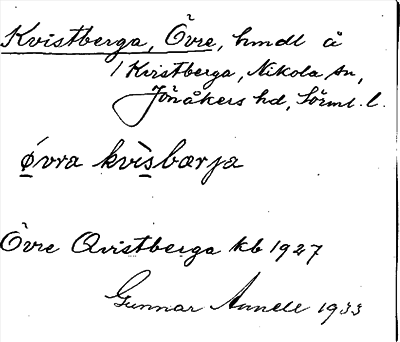 Kvistberga, Övre, hmdl å
1 Kvistberga, Nikolai sn,
Jönåkers hd, Södml. l.
ǿvra kvìsbærja
Övre Qvistberga kb 1927
Gunnar Annell 1933